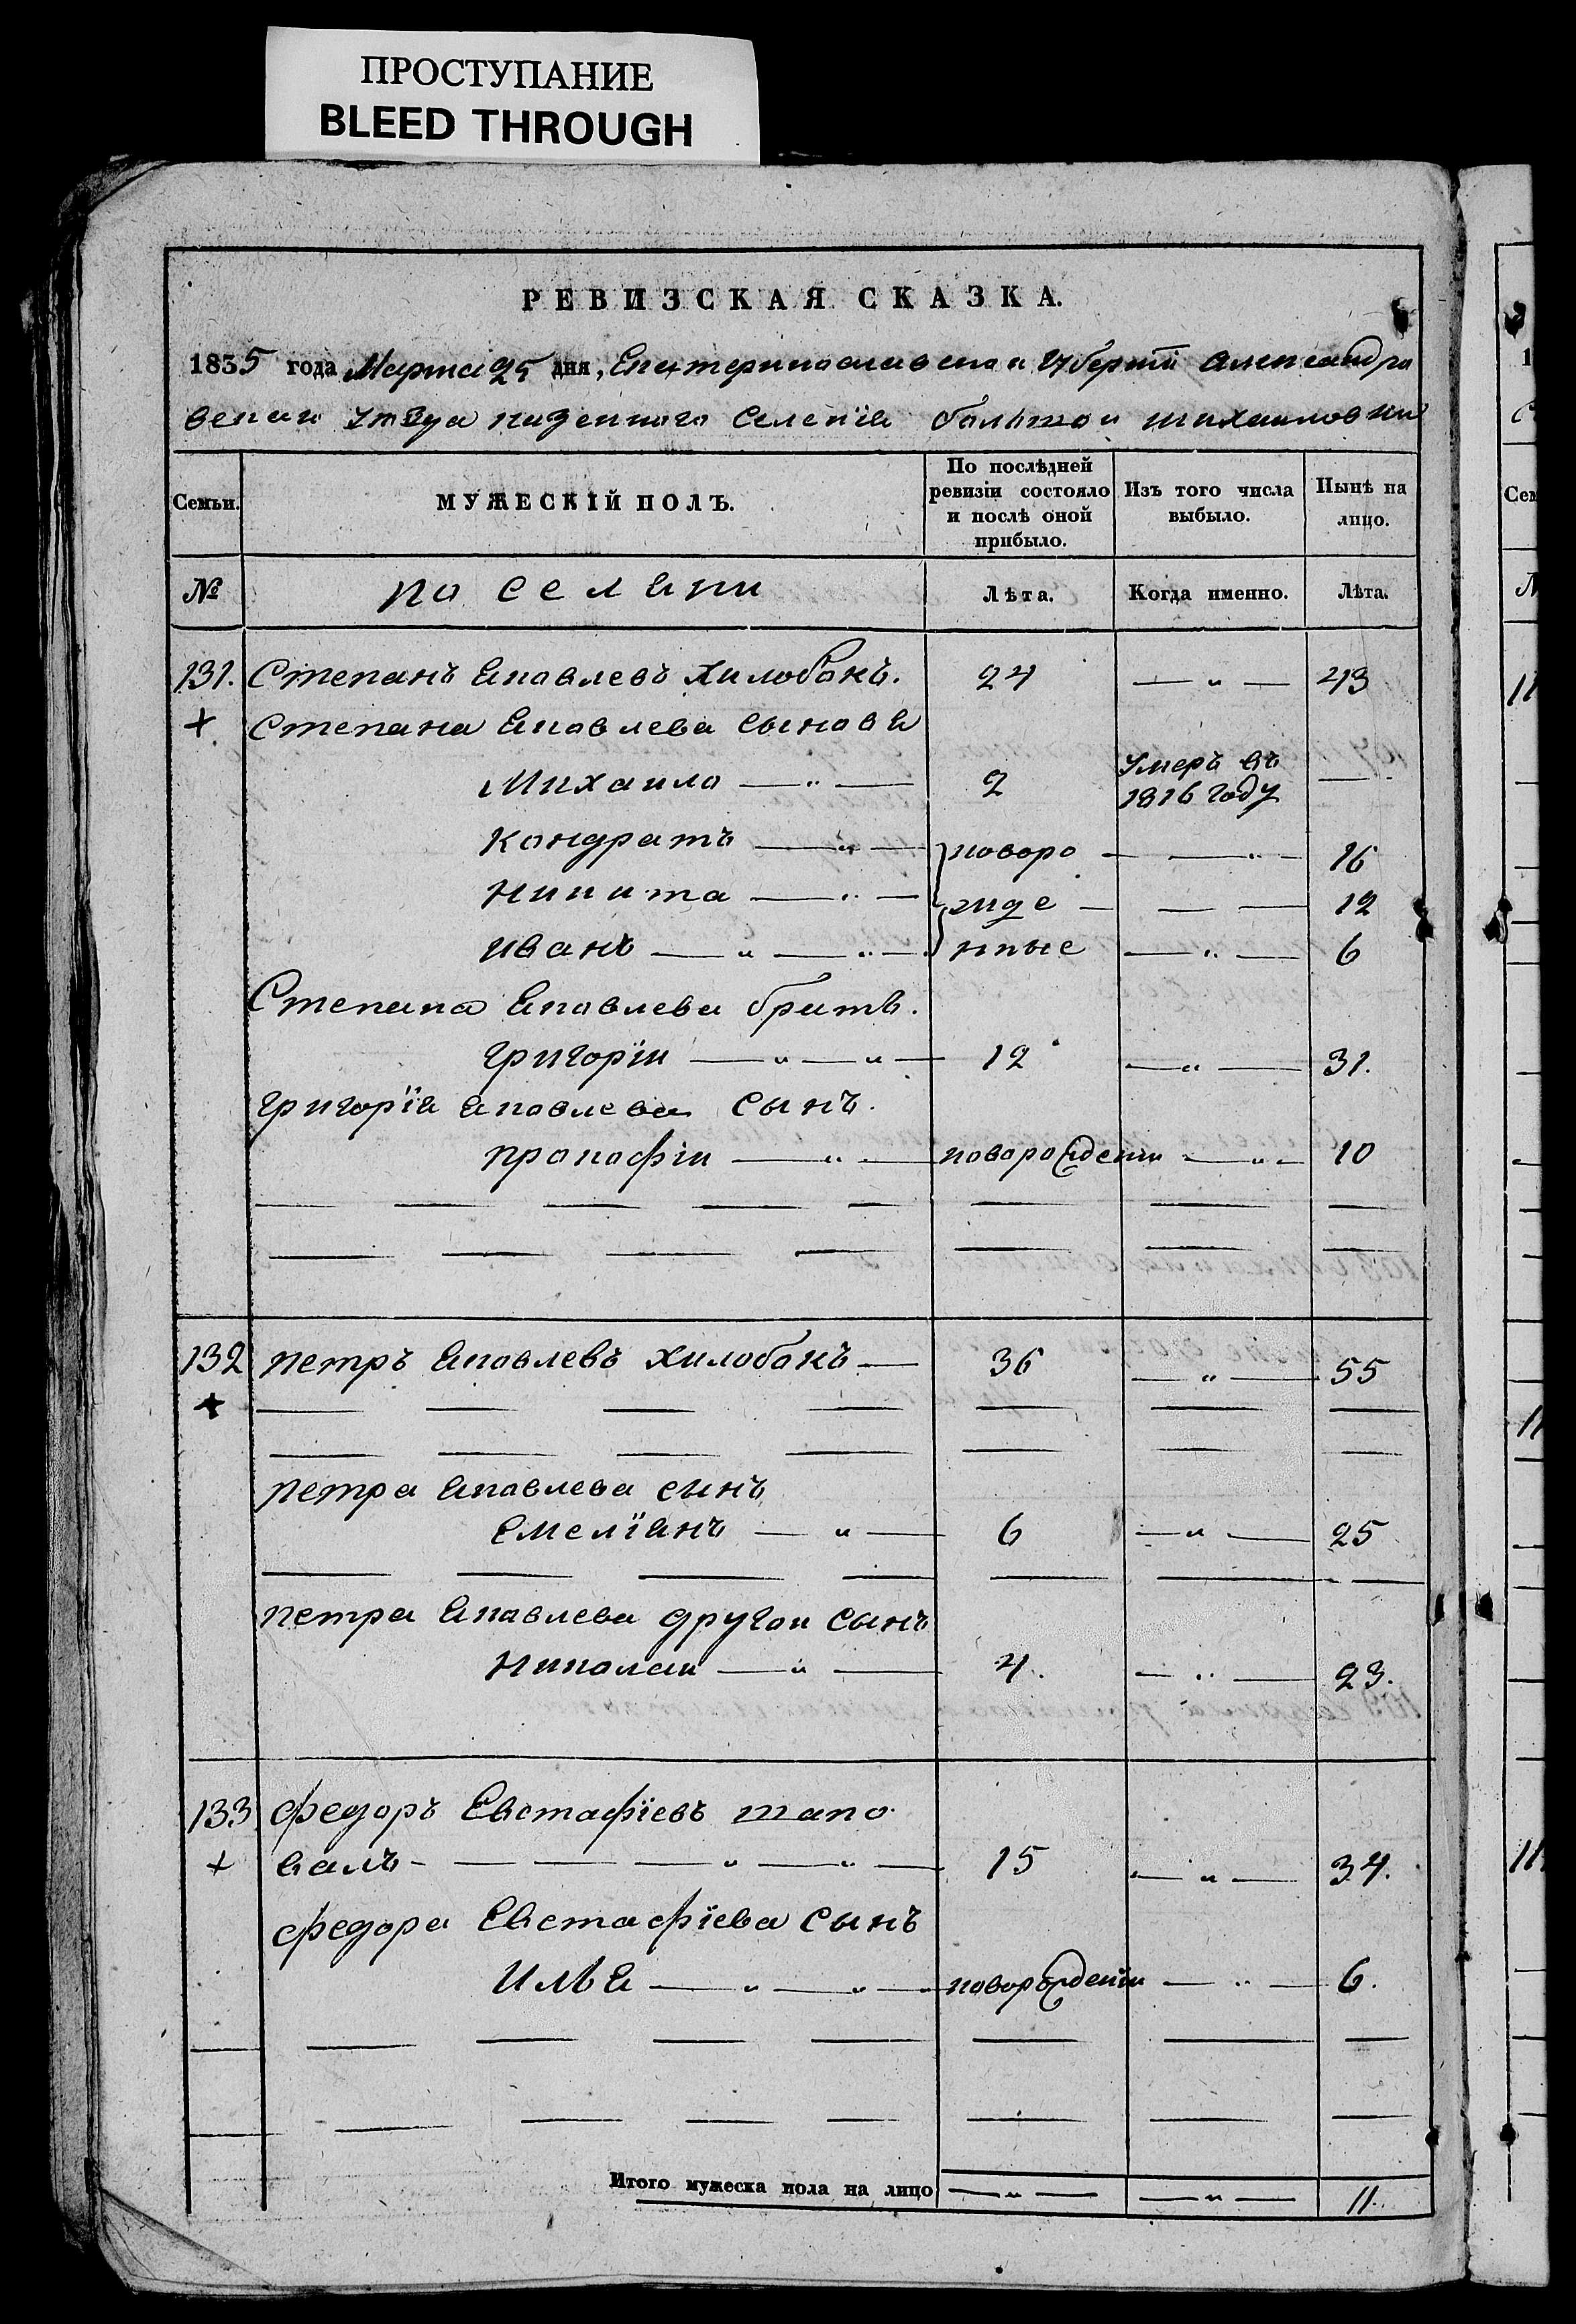 ПРОСТУПАНИЕ
BLEED THROUGH
РЕВИЗСКАЯ СКАЗКА.
1835 года Марта 25 дня, Екатеринославской Губерніи Александро
вскаго уѣзда казеннаго Селенія большой михаиловки
Семьи.
МУЖЕСКІЙ ПОЛЪ.
По послѣдней ревизіи состояло и послѣ оной прибыло.
Изъ того числа выбыло.
Нынѣ на лицо.
№ поселяни Лѣта. Когда именно. Лѣта.
131. Степанъ Яковлевъ хилобокъ. 24 — „ — 43
+ Степана Яковлева сыновя
Михаило — „ — 2 Умеръ въ 1816 году —
Кондратъ — „ — новоро — — „ — 16
Никита — „ — жде — — — 12
иванъ — „ — „ — нные — „ — 6
Степана Яковлева братъ.
григорій — „ — „ — 12 — „ — 31.
григорія яковлева сынъ.
прокофій — „ — новорожденъ — „ — 10
132 петръ Яковлевъ хилобокъ — 36 — „ — 55
+
петра яковлева сынъ
Емеліянъ — „ — 6 — „ — 25
петра Яковлева другой сынъ
николай — „ — 4. — „ — 23.
133 федоръ Евстафіевъ шапо
+ валъ — — — — „ — „ — 15 — „ — 34.
федора Евстафіева сынъ
илья — „ — „ — новорожденъ — „ — 6.
Итого мужеска пола на лицо — „ — — „ — 11.